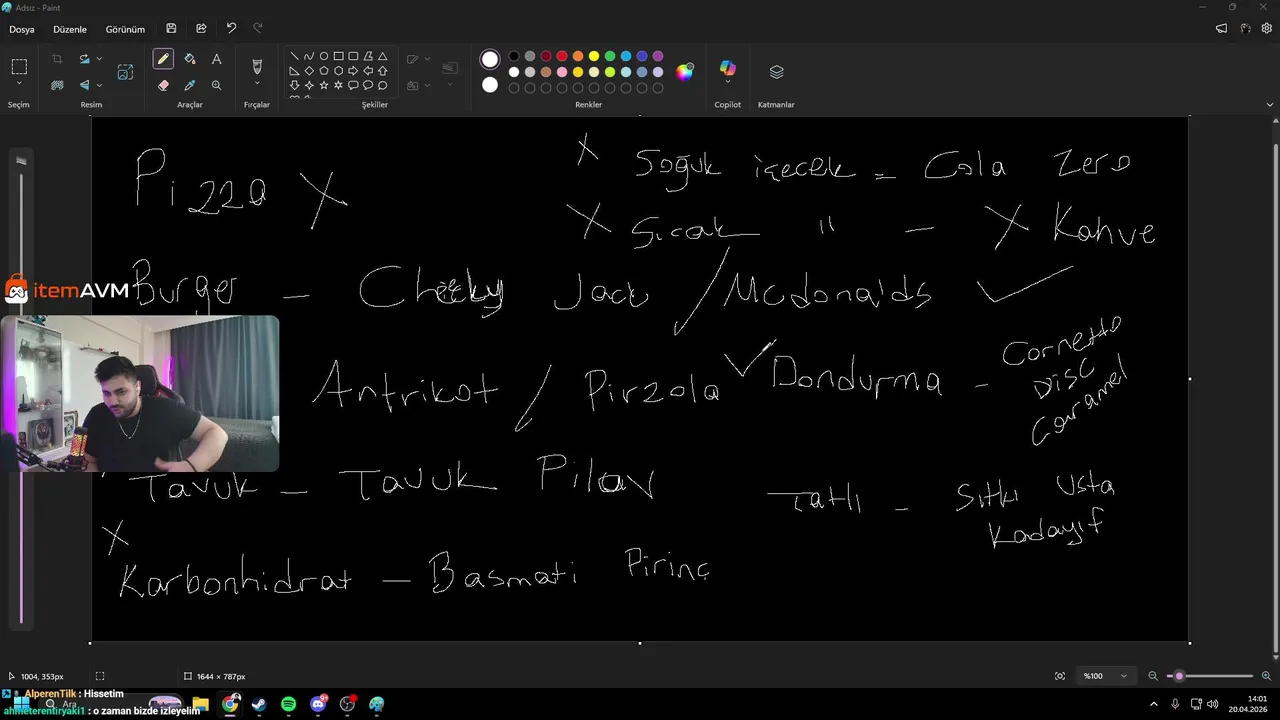 Adsız - Paint
Dosya Düzenle Görünüm
Seçim Resim Araçlar Fırçalar Şekiller Renkler Copilot Katmanlar
Pizza X
X Soğuk içecek = Cola Zero
X Sıcak " - X Kahve
Burger - Cheeky Jack / Mcdonalds ✓
itemAVM
Antrikot / Pirzola
✓ Dondurma - Cornetto
Disc
Caramel
Tavuk - Tavuk Pilav
Tatlı - Sıtkı Usta
Kadayıf
X
Karbonhidrat - Basmati Pirinç
1004, 353px 1644 × 787px %100
AlperenTilk : Hissetim
Ara
ahmeterentiryaki1 : o zaman bizde izleyelim
14:01
20.04.2026